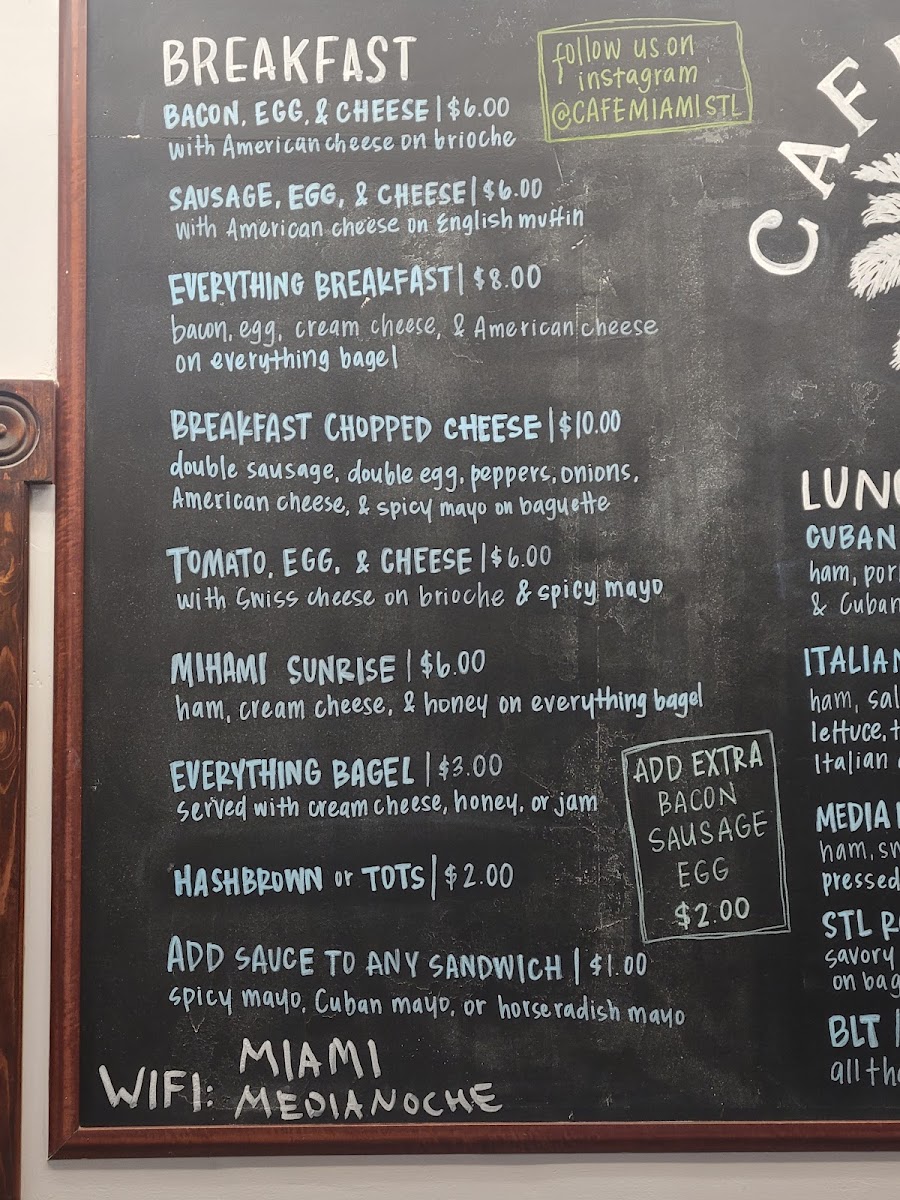 BREAKFAST
BACON, EGG, & CHEESE | $6.00
with American cheese on brioche
SAUSAGE, EGG, & CHEESE | $6.00
with American cheese on English muffin
EVERYTHING BREAKFAST | $8.00
bacon, egg, cream cheese, & American cheese
on everything bagel
BREAKFAST CHOPPED CHEESE | $10.00
double sausage, double egg, peppers, onions,
American cheese, & spicy mayo on baguette
TOMATO, EGG, & CHEESE | $6.00
with Swiss cheese on brioche & spicy mayo
MIHAMI SUNRISE | $6.00
ham, cream cheese, & honey on everything bagel
EVERYTHING BAGEL | $3.00
served with cream cheese, honey, or jam
HASHBROWN or TOTS | $2.00
ADD SAUCE TO ANY SANDWICH | $1.00
spicy mayo, Cuban mayo, or horseradish mayo
WIFI: MIAMI
MEDIANOCHE
follow us on
instagram
@CAFEMIAMISTL
ADD EXTRA
BACON
SAUSAGE
EGG
$2.00
CAFE
CUBAN
ham,
& Cuban
ITALIAN
ham,
lettuce,
Italian
MEDIA
ham,
pressed
STL
savory
on
BLT |
all